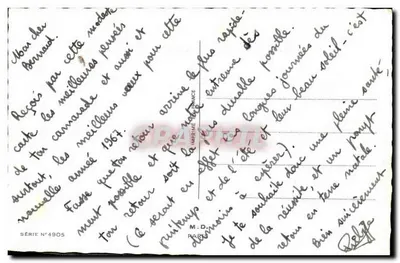 Mon cher
Bernard.
Reçois par cette modeste
carte les meilleures pensées
de ton camarade et aussi et
surtout, les meilleurs vœux pour cette
nouvelle année 1967.
Fasse que ton retour arrive le plus rapide-
ment possible et que notre entrevue dès
ton retour soit la plus durable possible
(Ce seront en effet les longues journées du
printemps et de l'été et leur beau soleil. c'est
du moins à espérer)
Je te souhaite donc une pleine santé
de la réussite, et un prompt
retour en terre natale.
Bien sincèrement
SÉRIE N° 4905
M. D.